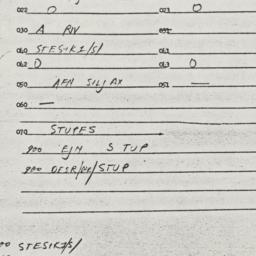 022 O 023 O
030 A RIV 032
040 STESIKI/S/ 041
042 O 043 O
050 AFN SILJAX 051 —
060 —
070 STUPES
900 EJN STUP
900 DESR/NF/STUP
STESIKI/S/